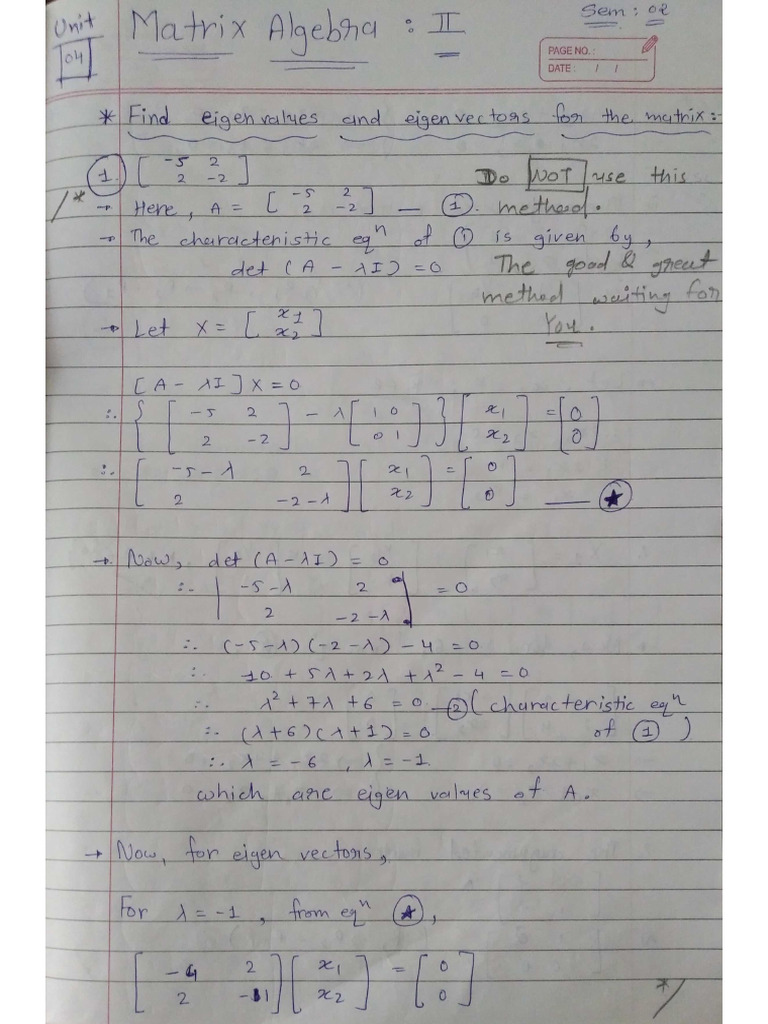 Unit
04
Matrix Algebra : II
Sem : 02
PAGE NO.:
DATE: / /
* Find eigen values and eigen vectors for the matrix:-
1. [ -5 2
2 -2 ]
Do NOT use this
/*
→ Here, A = [ -5 2
2 -2 ] — ①. method.
→ The characteristic eqⁿ of ① is given by,
det (A - λI) = 0 The good & great
method waiting for
→ Let X = [ x1
x2 ] You.
[A - λI] X = 0
∴ { [ -5 2
2 -2 ] - λ [ 1 0
0 1 ] } [ x1
x2 ] = [ 0
0 ]
∴ [ -5-λ 2
2 -2-λ ] [ x1
x2 ] = [ 0
0 ] — ★
→ Now, det (A-λI) = 0
∴ | -5-λ 2
2 -2-λ | = 0
∴ (-5-λ)(-2-λ) - 4 = 0
∴ 10 + 5λ + 2λ + λ² - 4 = 0
∴ λ² + 7λ + 6 = 0 — ② (characteristic eqⁿ
of ①)
∴ (λ+6)(λ+1) = 0
∴ λ = -6, λ = -1
which are eigen values of A.
→ Now, for eigen vectors,
For λ = -1, from eqⁿ ★,
[ -4 2
2 -1 ] [ x1
x2 ] = [ 0
0 ]
*/